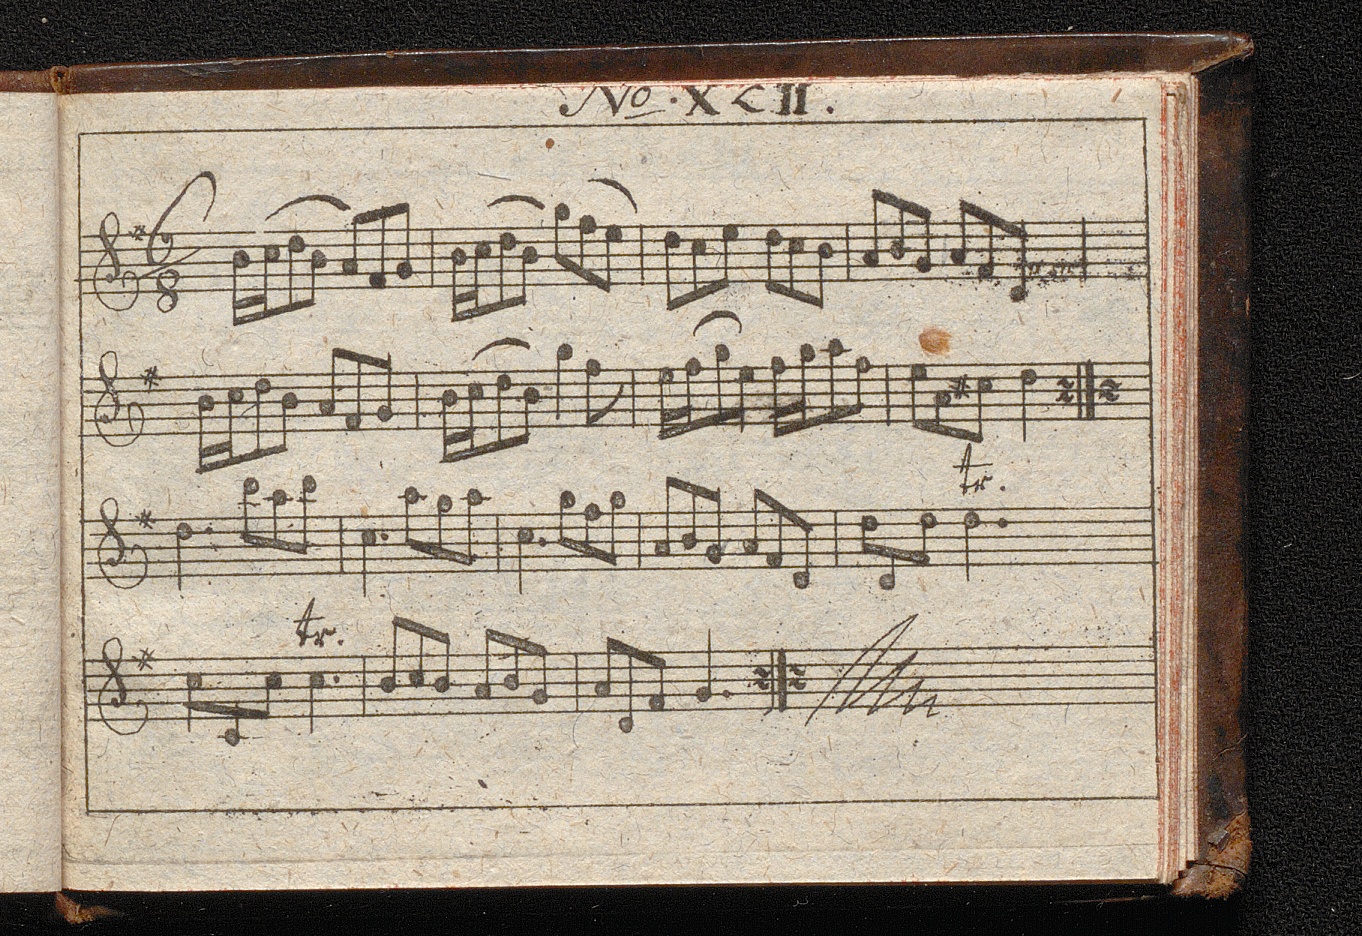 No. XCII.
6
8
tr.
tr.